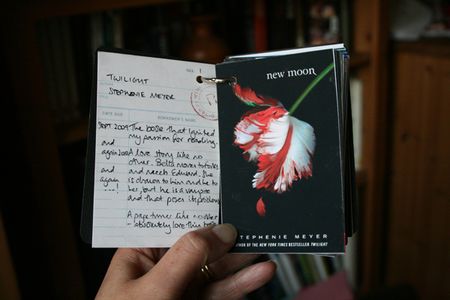 NO. 1
TWILIGHT
STEPHENIE MEYER
DATE DUE BORROWER'S NAME
SEPT 2009 The book that ignited
my passion for reading.
and
again 2009 A love story like no
other. Bella moves to
and and meets Edward. She
again is drawn to him and he to
...! her, but he is a vampire
and that poses its problems
A page turner like no other
- absolutely love this book
new moon
STEPHENIE MEYER
AUTHOR OF THE NEW YORK TIMES BESTSELLER TWILIGHT